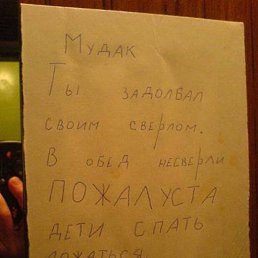 Мудак
Ты задолбал
своим сверлом.
В обед несверли
ПОЖАЛУСТА
ДЕТИ СПАТЬ
ЛОЖАТЬСЯ